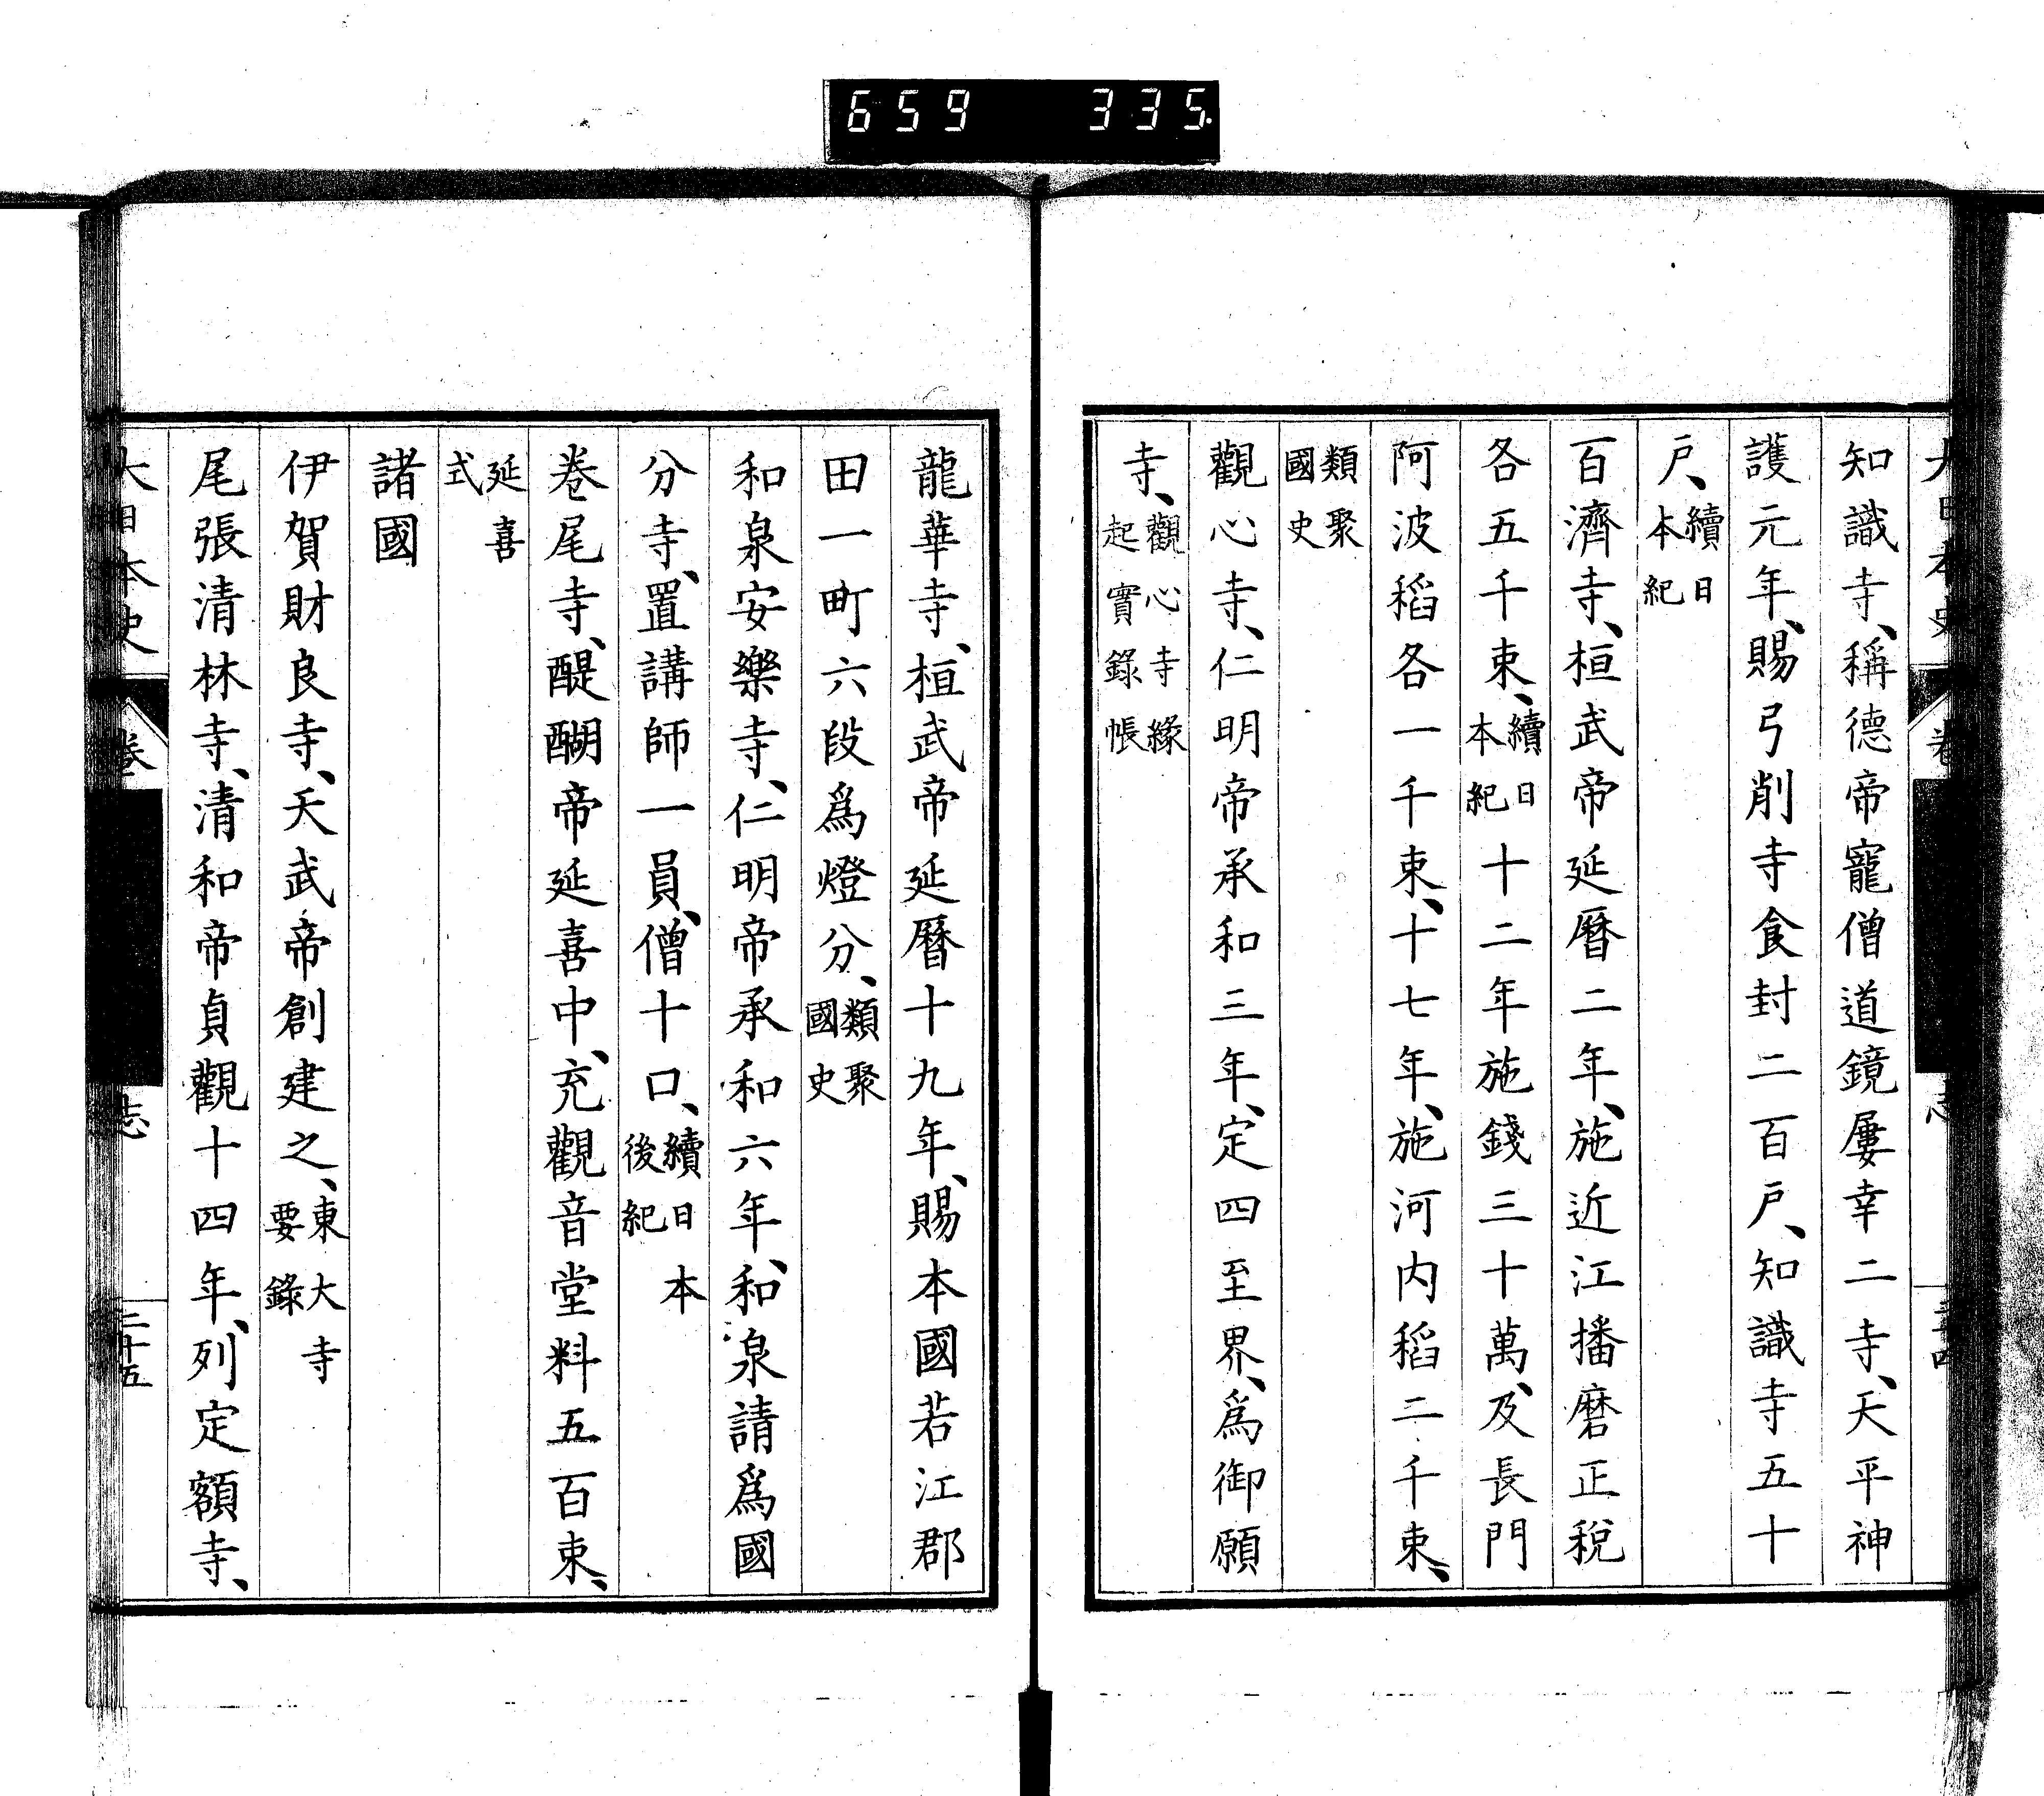 659 335.
知識寺、稱德帝寵僧道鏡屢幸二寺、天平神
護元年、賜弓削寺食封二百戸、知識寺五十
戸、續日本紀
百濟寺、桓武帝延曆二年、施近江播磨正稅
各五千束、續日本紀十二年施錢三十萬、及長門
阿波稻各一千束、十七年、施河內稻二千束、
類聚國史
觀心寺、仁明帝承和三年、定四至界、爲御願
寺、觀心寺緣起實錄帳
龍華寺、桓武帝延曆十九年、賜本國若江郡
田一町六段爲燈分、類聚國史
和泉安樂寺、仁明帝承和六年、和泉請爲國
分寺、置講師一員、僧十口、續日本後紀
卷尾寺、醍醐帝延喜中、充觀音堂料五百束、
延喜式
諸國
伊賀財良寺、天武帝創建之、東大寺要錄
尾張清林寺、清和帝貞觀十四年、列定額寺、
大日本史 卷 志 二十五